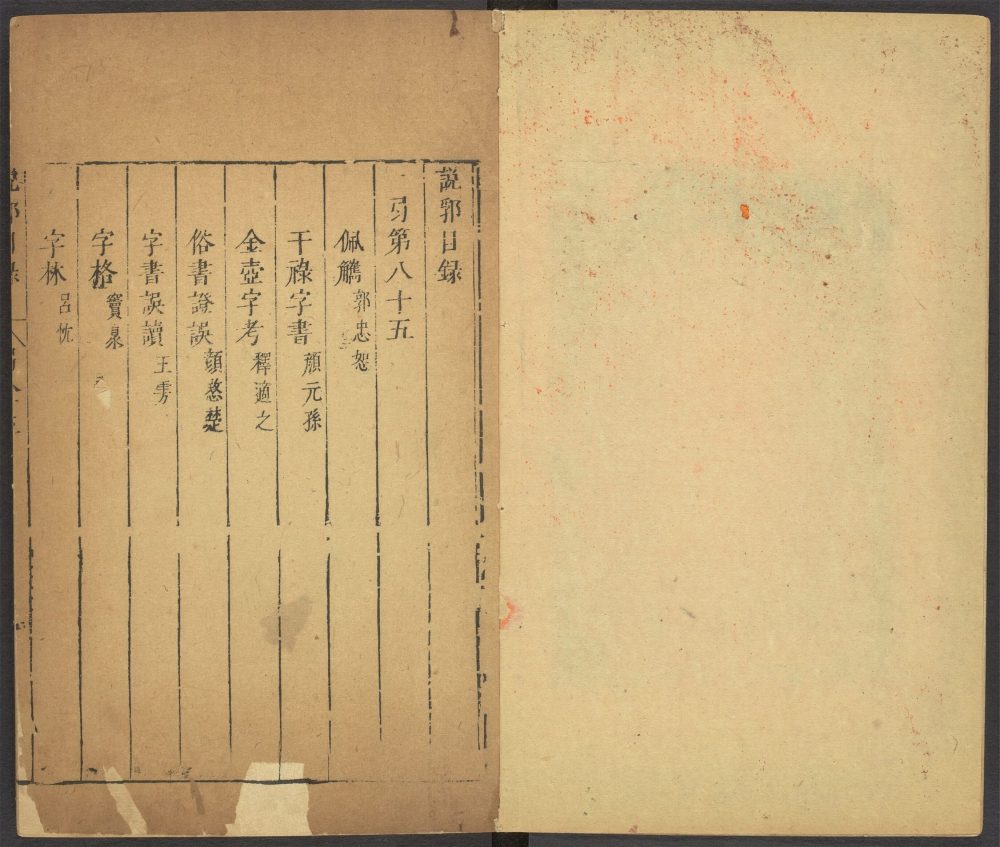 說郛目録
弓第八十五
佩觿 郭忠恕
干祿字書 顏元孫
金壺字考 釋適之
俗書證誤 顏愍楚
字書誤讀 王雱
字格 竇臮
字林 呂忱